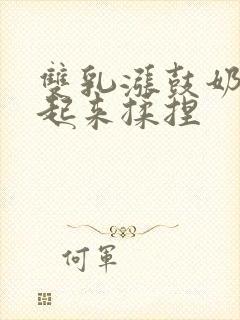 雙乳漲鼓奶
起来揉捏
何軍